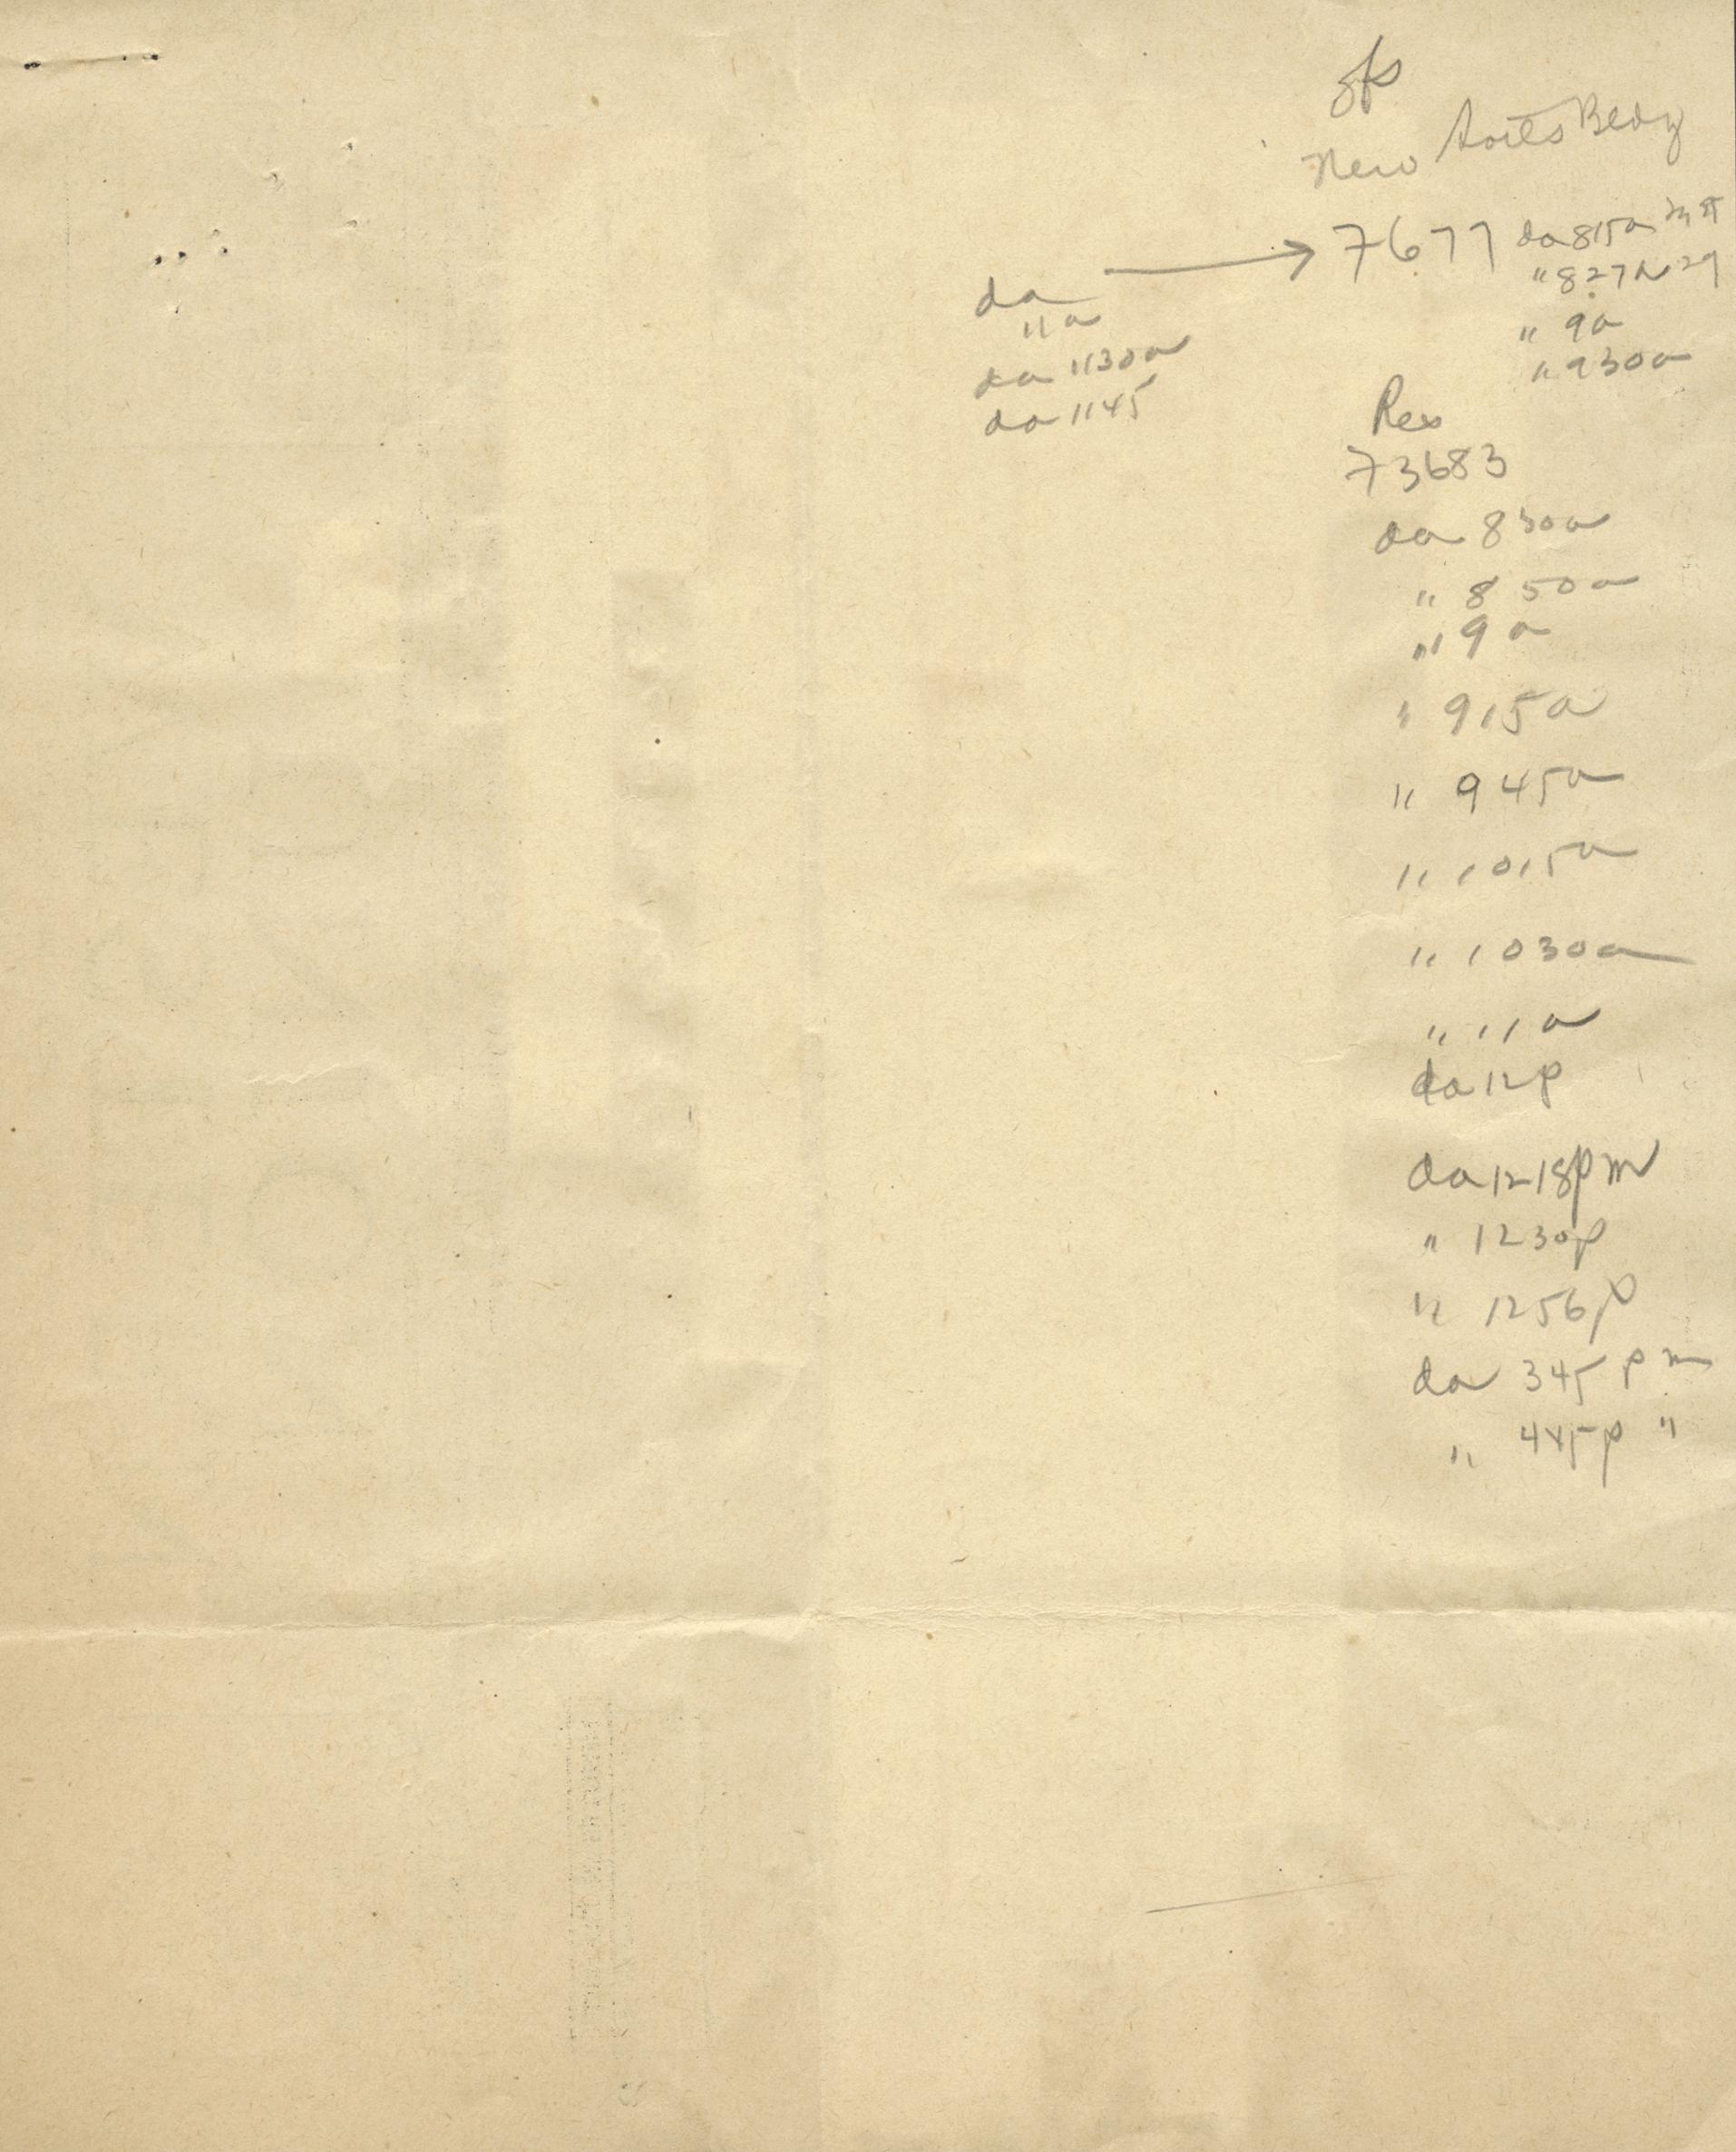 ofs
New Bldg
7677 da 815a
" 827a 29
" 9a
" 930a
da
11a
da 1130a
da 1145
Res
73683
da 830a
" 850a
" 9a
" 915a
" 945a
" 1015a
" 1030a
" 11a
da 12p
da 1218pm
" 1230p
" 1256p
da 345pm
" 445p "